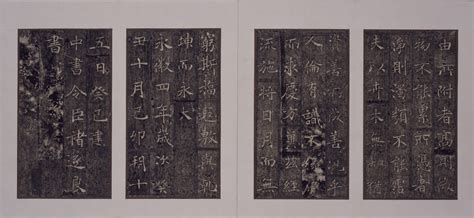 由所附者高則微
物不能累所憑者
淨則濁類不能霑
夫以卉木無知猶
資善而成善況乎
人倫有識不緣慶
而求慶方冀茲經
流施將日月而無
窮斯福遐敷與乾
坤而永大
永徽四年歲次癸
丑十月己卯朔十
五日癸巳建
中書令臣褚遂良
書